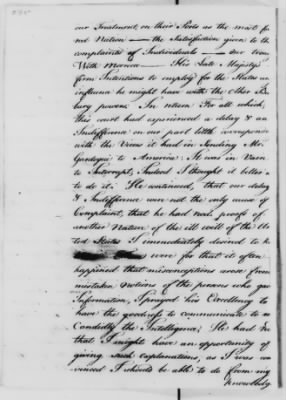 our Treatment on their Ports as the most fa
red Nation — the Satisfaction given to the
complaints of Individuals — our Treaty
With Morocco — His Late Majestys
firm Intentions to employ for the States an
influence he might have with the Other Bar
bary powers. In return For all which,
this court had experienced a delay & an
Indifference on our part little correspond
with the Views it had in Sending Mr.
Gardoqui to America. It was in Vain
to Interrupt, Indeed I thought it better
to do it. He continued, that our delay
& Indifference were not the only cause of
Complaint, that he had real proofs of
another Nature of the ill will of the Uni
ted States I immediately desired to k
were for that it often
happened that misconceptions arose from
mistaken notions of the persons who gave
Information, I prayed his Excellency to
have the goodness to communicate to me
Candidly the Intelligence; He had
that I might have an opportunity of
giving such explanations, as I was con
vinced I should be able to do from my
knowledge